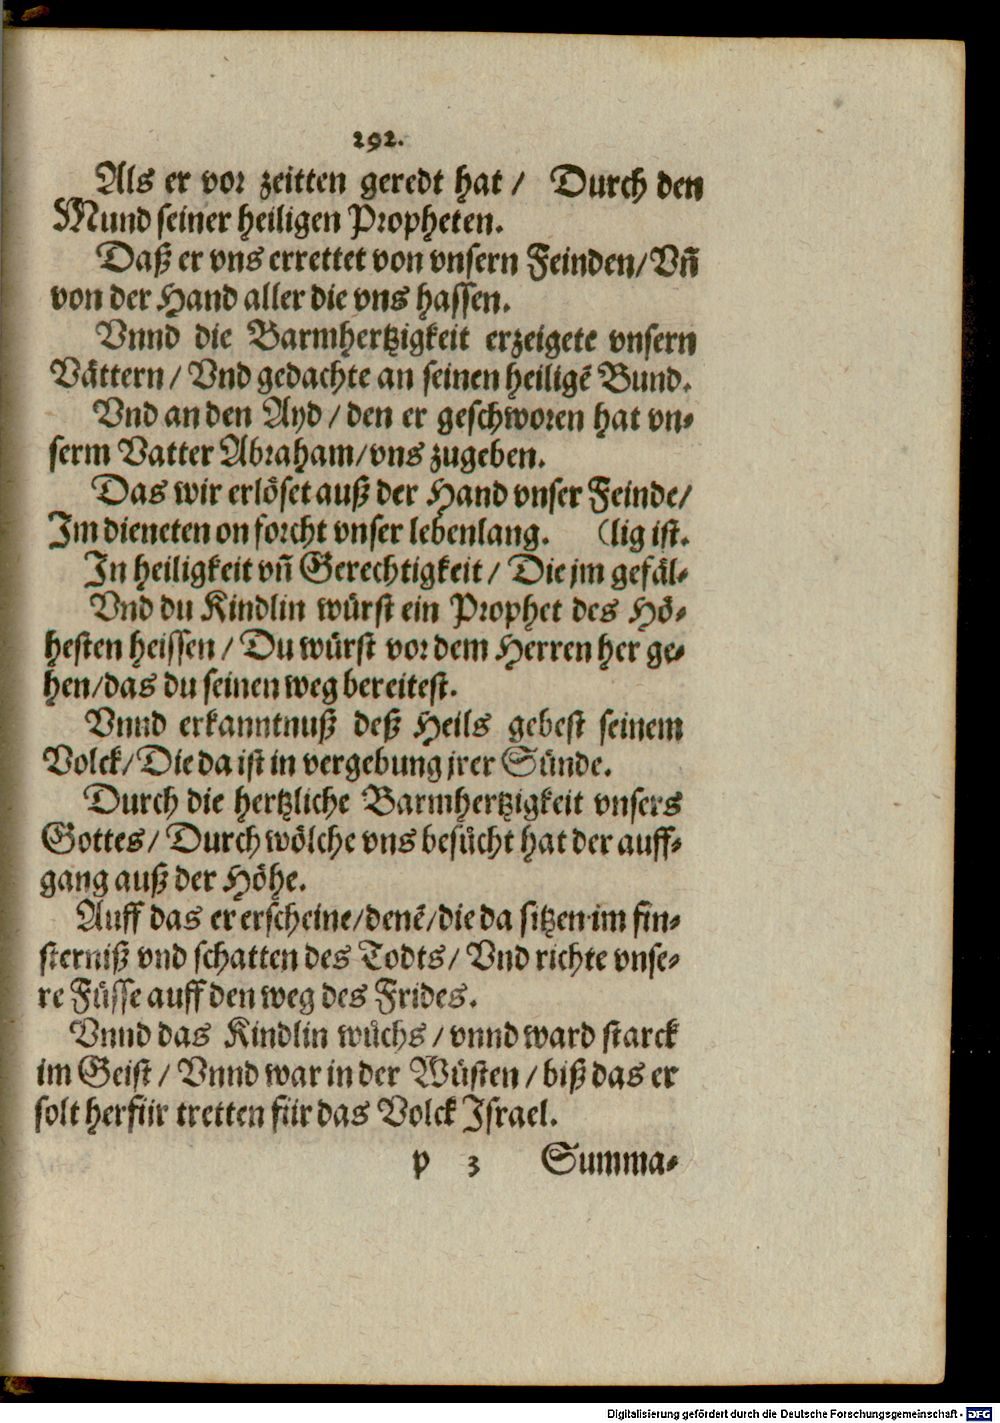 292.
Als er vor zeitten geredt hat / Durch den
Mund seiner heiligen Propheten.
Daß er vns errettet von vnsern Feinden/ Vñ
von der Hand aller die vns hassen.
Vnnd die Barmhertzigkeit erzeigete vnsern
Vättern / Vnd gedachte an seinen heiligẽ Bund.
Vnd an den Ayd / den er geschworen hat vn-
serm Vatter Abraham/ vns zugeben.
Das wir erlöset auß der Hand vnser Feinde/
Im dieneten on forcht vnser lebenlang. (lig ist.
In heiligkeit vñ Gerechtigkeit / Die jm gefäl-
Vnd du Kindlin würst ein Prophet des Hö-
hesten heissen / Du würst vor dem Herren her ge-
hen/das du seinen weg bereitest.
Vnnd erkanntnuß deß Heils gebest seinem
Volck/ Die da ist in vergebung jrer Sünde.
Durch die hertzliche Barmhertzigkeit vnsers
Gottes/ Durch wölche vns besůcht hat der auff-
gang auß der Höhe.
Auff das er erscheine/denẽ/die da sitzen im fin-
sterniß vnd schatten des Todts/ Vnd richte vnse-
re Füsse auff den weg des Frides.
Vnnd das Kindlin wůchs / vnnd ward starck
im Geist / Vnnd war in der Wüsten / biß das er
solt herfür tretten für das Volck Israel.
p 3 Summa-
Digitalisierung gefördert durch die Deutsche Forschungsgemeinschaft - DFG